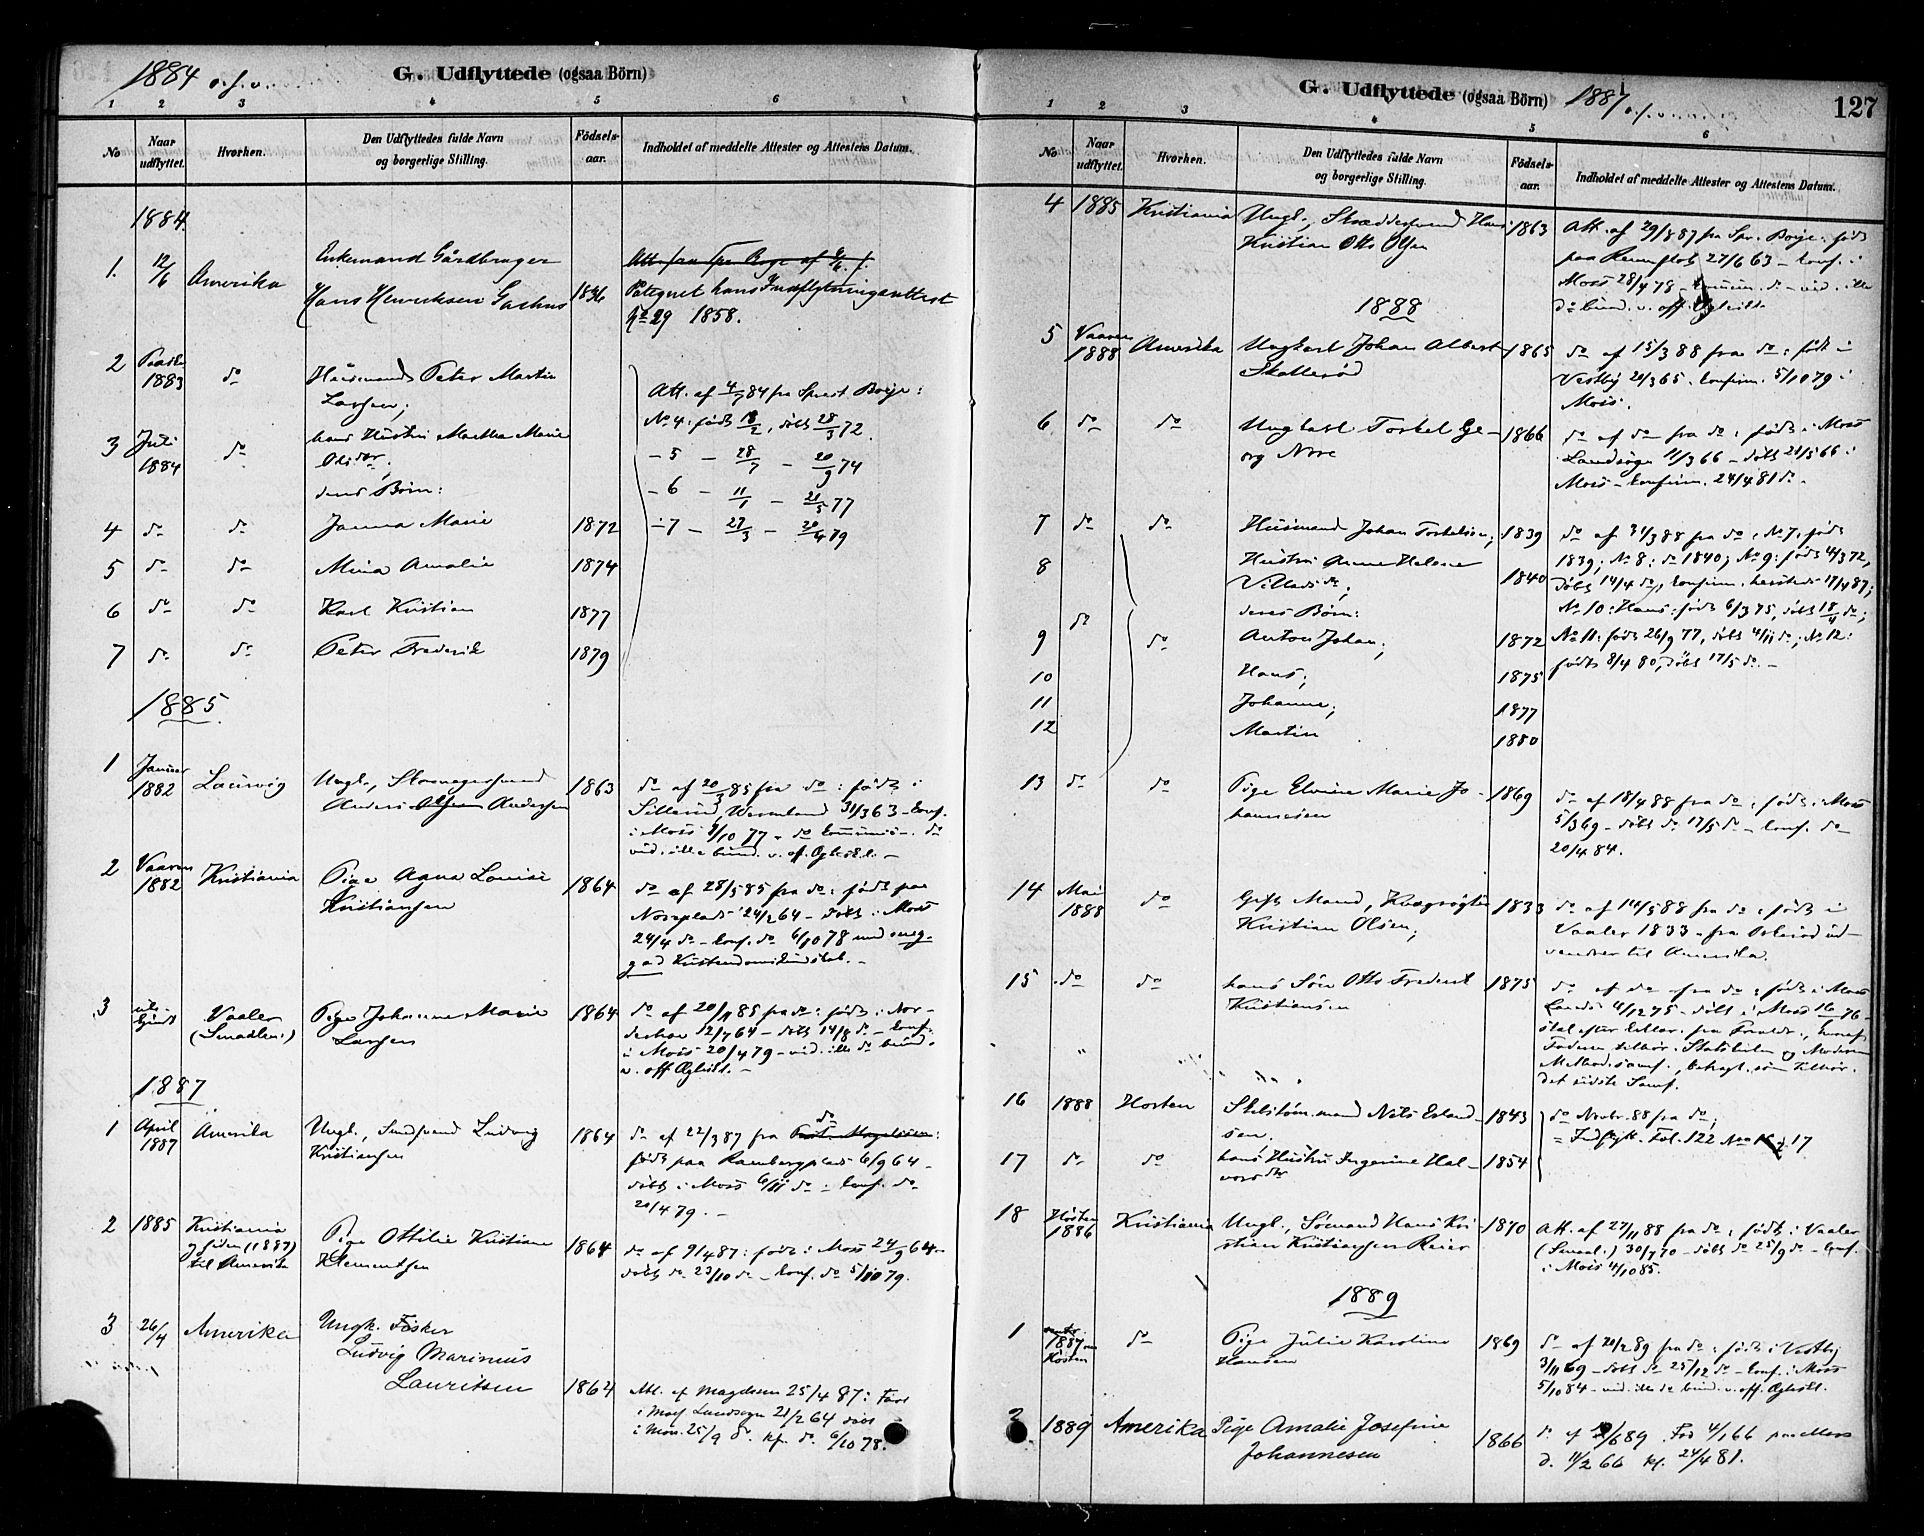 1884 o.f.v.
G. Udflyttede (ogsaa Börn)
1 2 3 4 5 6
No
Naar udflyttet.
Hvorhen.
Den Udflyttedes fulde Navn og borgerlige Stilling.
Födsels-aar.
Indholdet af meddelte Attester og Attestens Datum.
1884.
1. 12/6 Amerika Enkemand Gårdbruger
Hans Henriksen 1836 Paategnet hans Indflytningsattest
No 29 1858.
2 1883 do Husmand Peter Martin
Larsen; Att. af 4/7 84 fra Sprest Borge:
No 4: født 18/2, døbt 28/3 72.
3 Juli 1884 do hans Hustru Martha Marie
Olsdtr; - 5 - 28/7 - 20/9 74
deres Børn: - 6 - 11/1 - 21/5 77
4 do do Janna Marie 1872 - 7 - 27/3 - 20/4 79
5 do do Mina Amalie 1874
6 do do Karl Kristian 1877
7 do do Peter Frederik 1879
1885
1 Januar 1882 Laurvig Ungk., Skomagersvend 1863 do af 20/3 85 fra do: født i
Anders Andersen Wermland 31/3 63 - konf.
i Moss 7/10 77 - do
vid. ikke bund. v. off. Ægteskl. -
2 Vaaren 1882 Kristiania Pige Agna Louise 1864 do af 28/5 85 fra do: født paa
Kristiansen 24/2 64 - døbt i Moss
24/4 do - konf. do 6/10 78 med meg-
get god Kristendomskundskab. -
3 Vaaler (Smaalen.) Pige Johanne Marie 1864 do af 20/11 85 fra do: født i
Larsen 12/7 64 - døbt 14/8 do - konf.
i Moss 20/4 79 - vid. ikke do bund.
v. off. Ægteskl. -
1887
1 April 1887 Amerika Ungk., Ludvig 1864 do af 22/3 87 fra do
Kristiansen født paa 6/9 64 -
døbt i Moss 6/11 do - konf. do
20/4 79. -
2 1885 Kristiania og siden (1887) til Amerika Pige Ottilie Kristiane 1864 do af 9/4 87: født i Moss 24/9 64 -
Klementsen døbt do 23/10 do - konf. do 5/10 79.
3 26/4 Amerika Ungk. Fisker
Ludvig Marinius
Lauritsen 1864 Att. af Magelssen 25/4 87: Født
i Moss Landsogn 21/2 64 døbt
i Moss 25/9 d. kf. d. 6/10 78.
G. Udflyttede (ogsaa Börn)
1887 o.f.v.
127
1 2 3 4 5 6
No
Naar udflyttet.
Hvorhen.
Den Udflyttedes fulde Navn og borgerlige Stilling.
Födsels-aar.
Indholdet af meddelte Attester og Attestens Datum.
4 1885 Kristiania Ungk., Skræddersvend Hans 1863 Att. af 29/8 87 fra Spr. Borge: født
Kristian Otto Olsen paa 27/6 63 - konf. i
Moss 28/4 78 - do - vid. ikke
do bund. v. off. Ægteskl.
1888
5 Vaaren 1888 Amerika Ungkarl Johan Albert 1865 do af 15/3 88 fra do: født i
Skallerød Vestby 21/3 65. konfirm. 5/10 79 i
Moss.
6 do do Ungkarl Torkel Ge- 1866 do af do fra do: født i Moss
org Nore Landsogn 11/3 66 - døbt 21/5 66 i
Moss - konfirm. 24/4 81 do -
7 do do Husmand Johan Torkelsen; 1839 do af 31/3 88 fra do: No 7, født
8 Hustru Anne Helene 1840 1839; No 8: do 1840; No 9: født 4/3 72,
Villadsdtr; døbt 14/4 do, konfirm. 17/4 87;
do deres Børn: No 10: Hans: født 6/3 75, døbt 18/4 do;
9 do Anton Johan; 1872 No 11: født 26/9 77, døbt 4/11 do; No 12:
10 Hans; 1875 født 8/4 80, døbt 17/5 do. -
11 Johanne; 1877
12 Martin 1880
13 do do Pige Elvine Marie Jo- 1869 do af 18/4 88 fra do: født i Moss
hannesen 5/3 69 - døbt do 17/5 do - konf. do
20/4 84.
14 Mai 1888 do Gift Mand, 1833 do af 14/5 88 fra do: født i
Kristian Olsen; Vaaler 1833 - fra ud-
vandrer til Amerika.
15 do do hans Søn Otto Frederik 1875 do af do fra do: født i Moss
Kristiansen Lands. 4/12 75 - døbt i Moss 16/ 76 -
skal efter fra Foreldr., hvoraf
Faderen tilhør. Statskirken og Moderen
Methodistsamf., betragt. som tilhør.
det sidste Samf.
16 1888 Horten Nils Erland- 1843 do Novbr. 88 fra do,
sen. = Indflytt. Fol. 122 No 16 & 17
17 do do hans Hustru Ingerine Hal- 1854
vorsdtr
18 Høsten 1886 Kristiania Ungk., Sømand Hans Kri- 1870 Att. af 27/11 88 fra do: født i Vaaler
stian Kristiansen Reier (Smaal.) 30/7 70 - døbt do 25/9 do - konf.
i Moss 4/10 85.
1889
1 1887 om Høsten do Pige Julie Karoline 1869 do af 20/2 89 fra do: født i Vestby
Hansen 3/11 69 - døbt do 25/12 do - konf. i Moss
5/10 84 - vid. ikke do bund. v. off. Ægteskl.
2 1889 Amerika Pige Amalie Josefine
Johannesen 1866 d. af /6 89. Fød 4/1 66 paa Moss
d. 11/2 66 kf. 24/4 81.